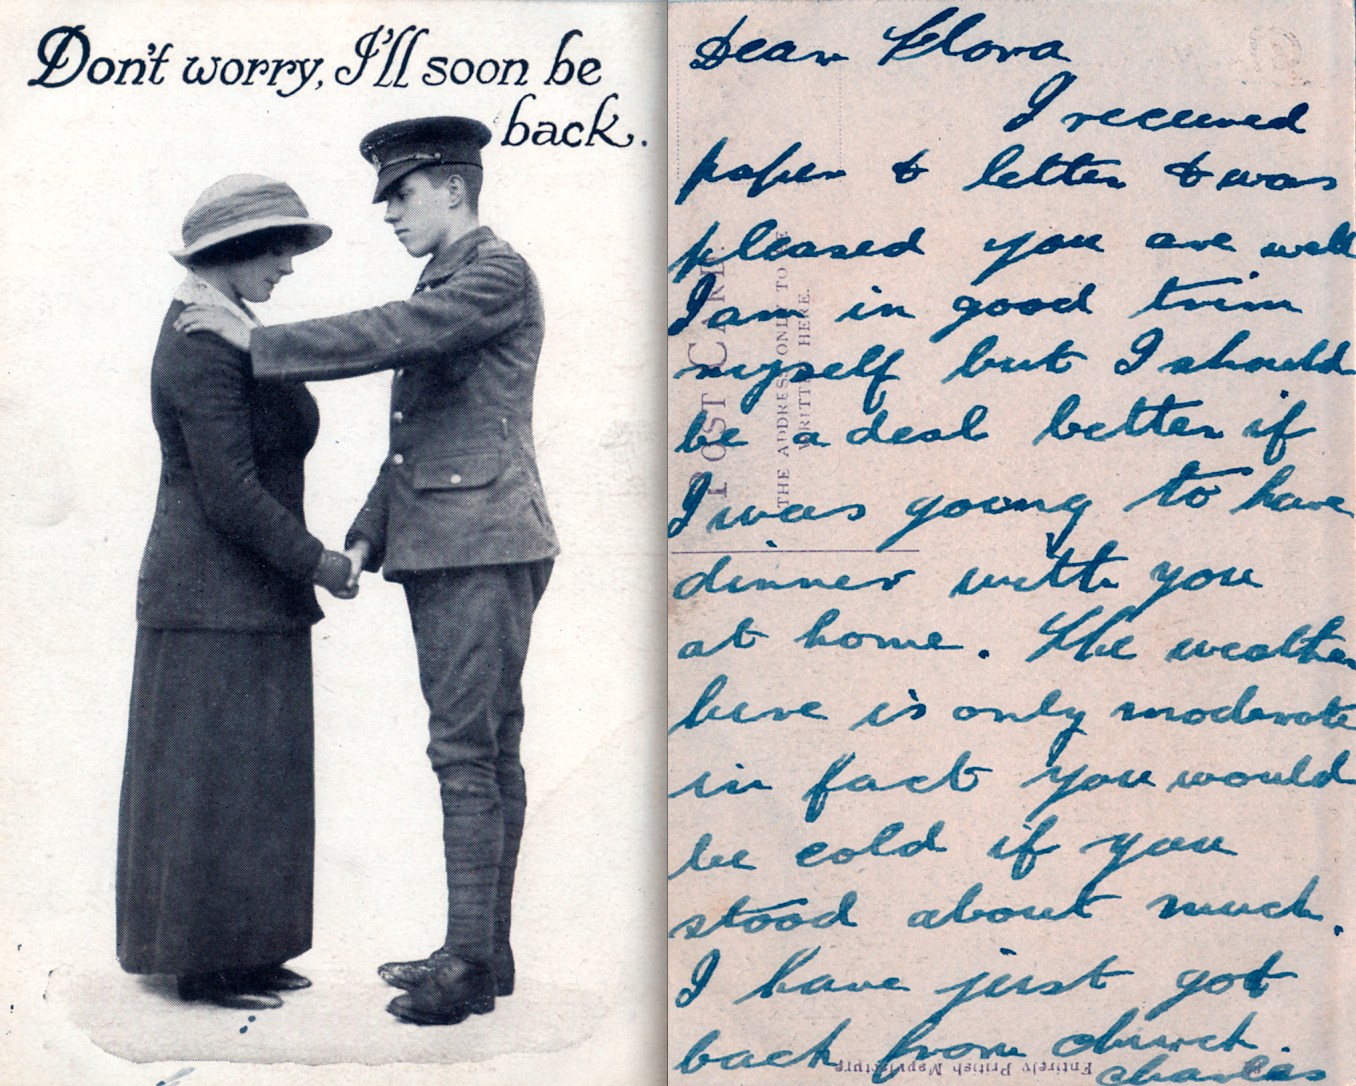 Don't worry, I'll soon be
back.
Dear Flora
I received
paper & letter & was
pleased you are well
I am in good trim
myself but I should
be a deal better if
I was going to have
dinner with you
at home. The weather
here is only moderate
in fact you would
be cold if you
stood about much.
I have just got
back from church.
Charles
POST CARD
THE ADDRESS ONLY TO BE
WRITTEN HERE.
Entirely British Manufacture